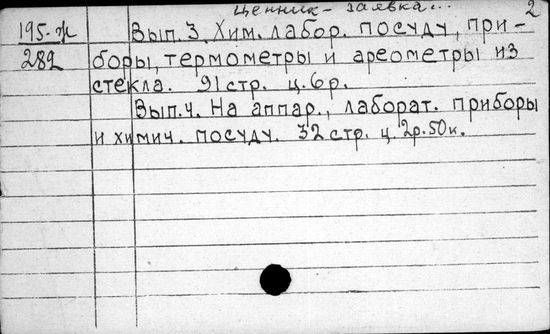 Ценник - заявка... 2
195-ж Вып. 3. Хим. лабор. посуду, при-
282 боры, термометры и ареометры из
стекла. 91 стр. ц. 6 р.
Вып. 4. На аппар., лаборат. приборы
и химич. посуду. 32 стр. ц. 2р. 50 к.